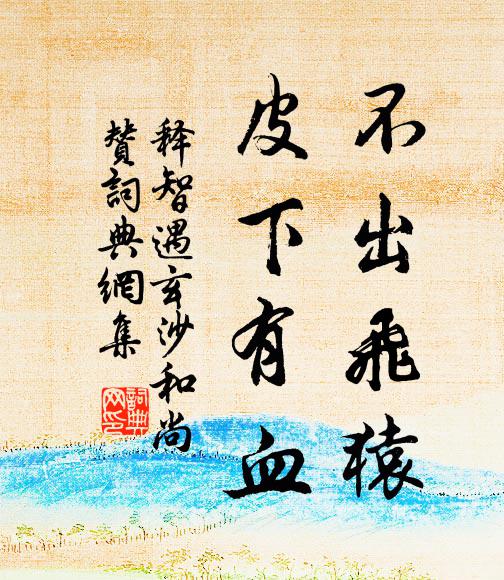 不出飛猿
皮下有血
释智遇玄沙和尚
贊詞典網集
詞典网印